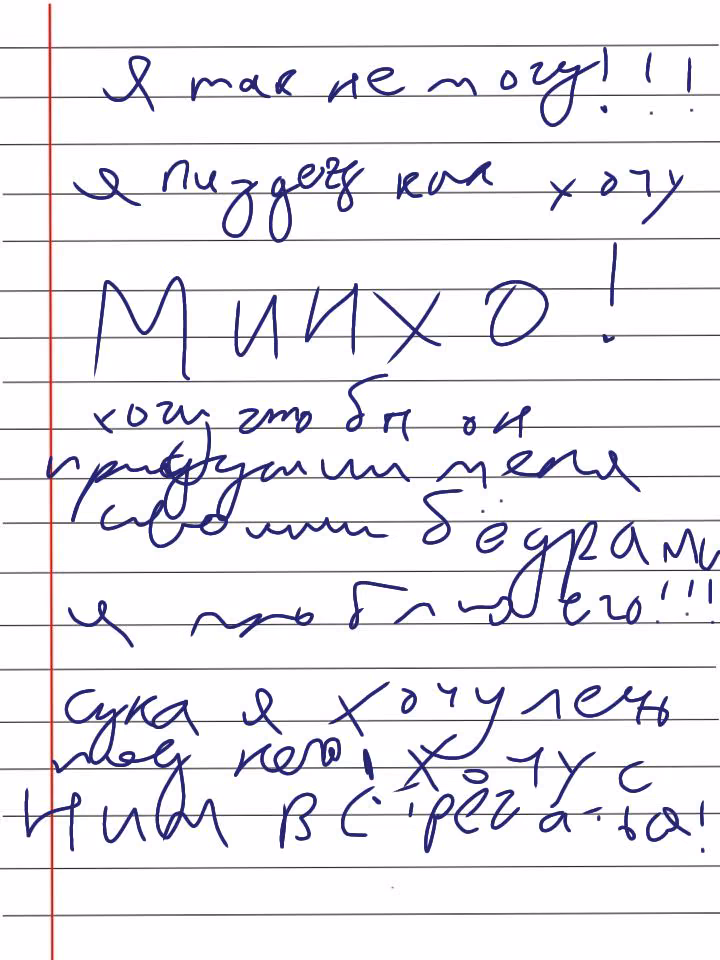 я так не могу!!!
я пиздец как хочу
МИНХО!
хочу что бы он
придушил меня
своими бедрами
я люблю его!!!
сука я хочу лечь
под него, хочу с
ним встречаться!